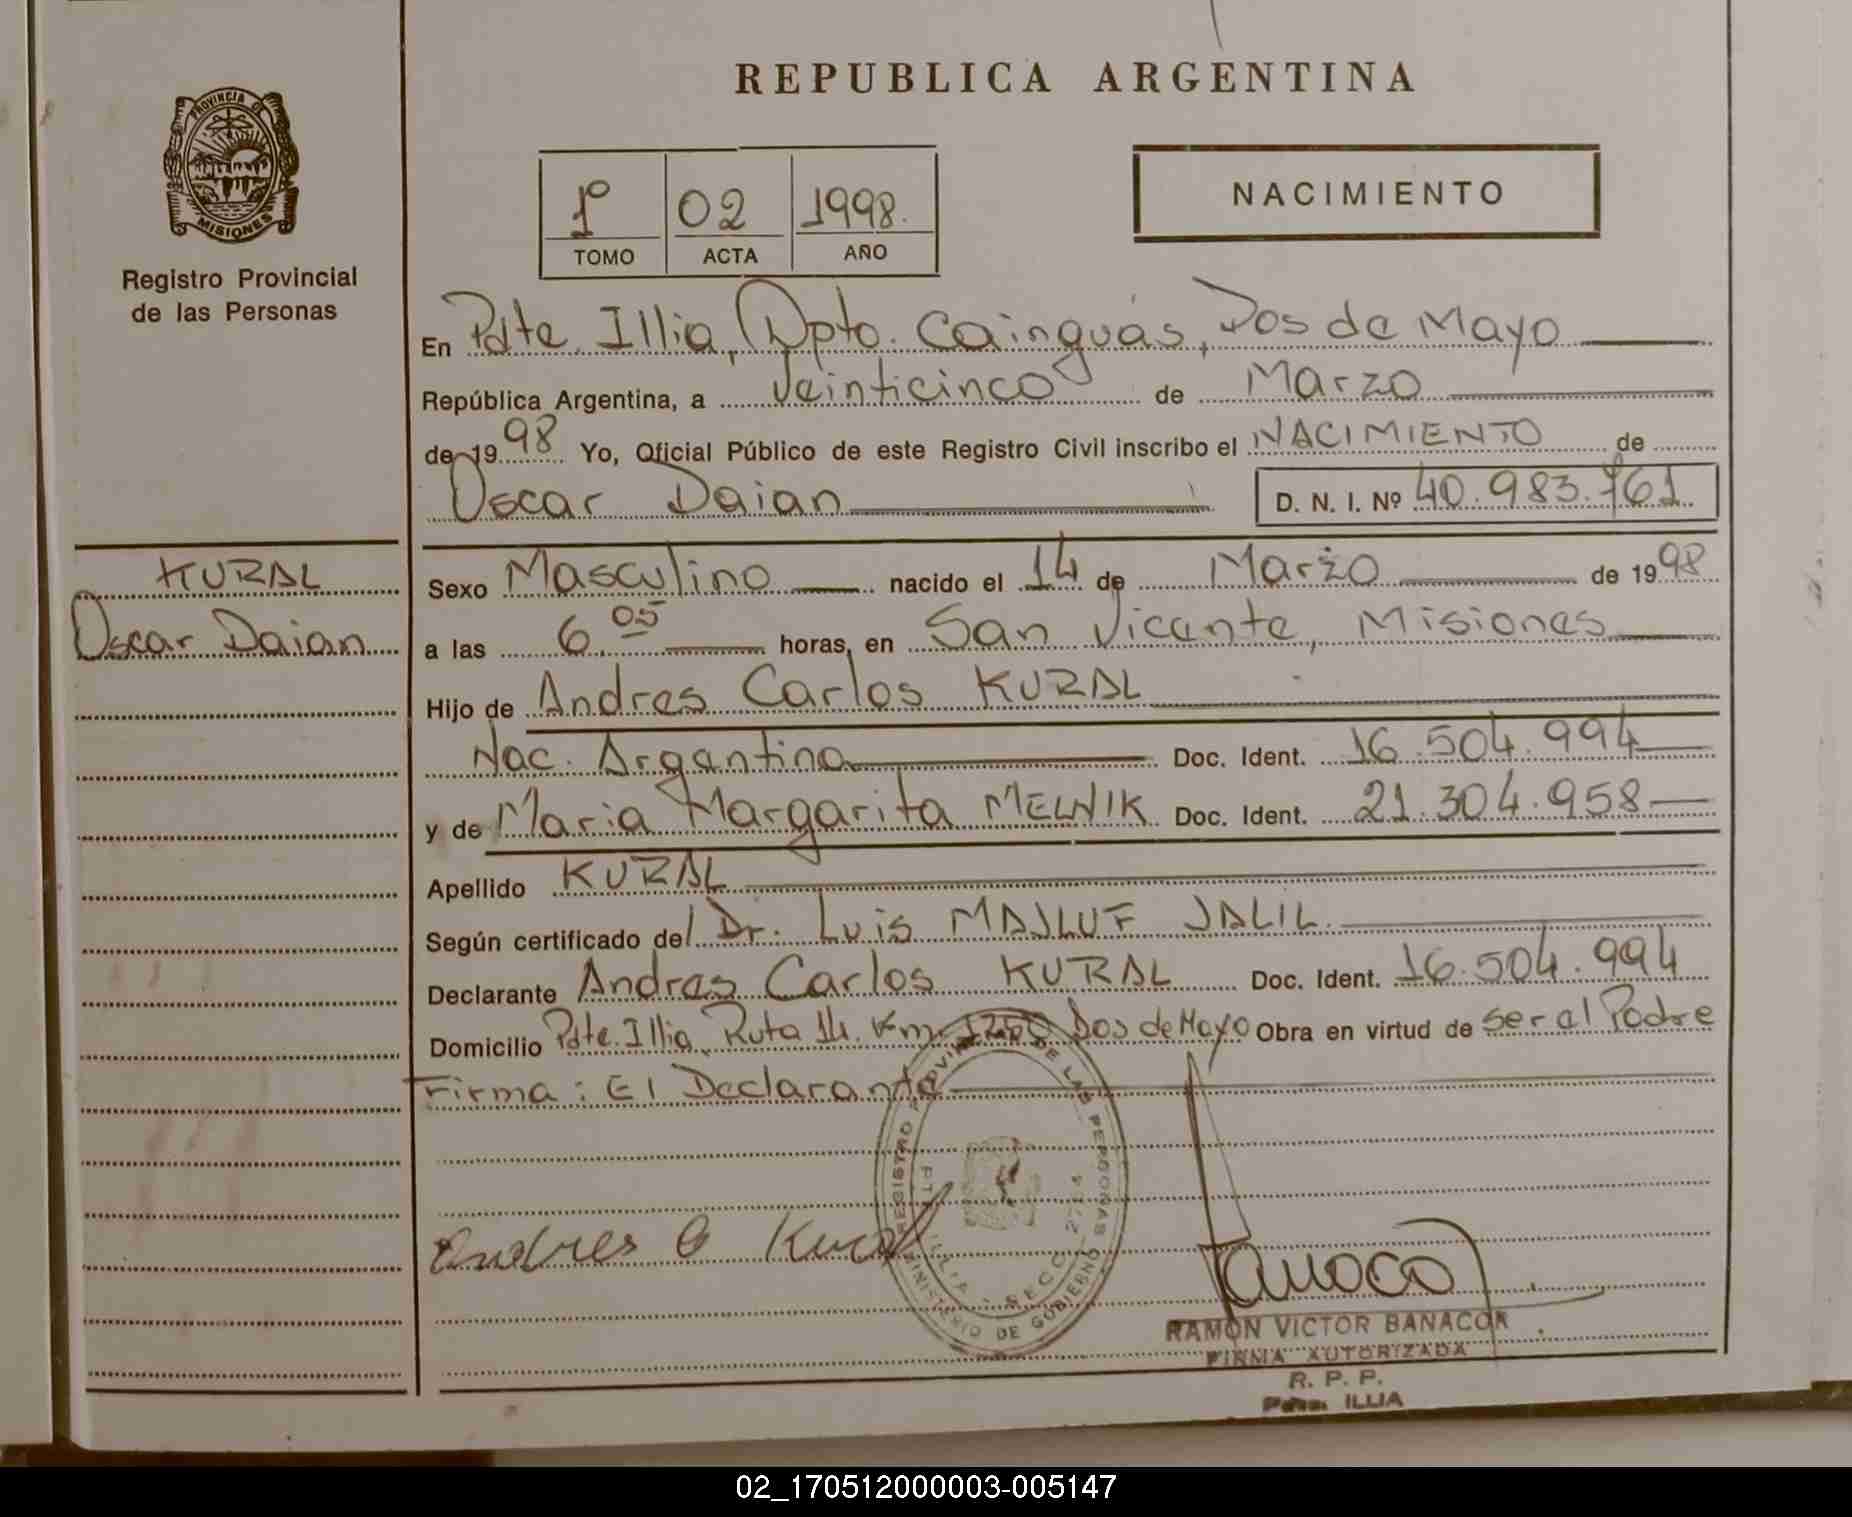 REPUBLICA ARGENTINA
PROVINCIA DE
MISIONES
Registro Provincial
de las Personas
1º 02 1998.
TOMO ACTA AÑO
NACIMIENTO
En Pdte. Illia, Dpto. Cainguás, Dos de Mayo
República Argentina, a Veinticinco de Marzo
de 1998 Yo, Oficial Público de este Registro Civil inscribo el NACIMIENTO de
Oscar Daian D. N. I. Nº 40.983.761.
KURAL
Oscar Daian
Sexo Masculino nacido el 14 de Marzo de 1998
a las 6,05 horas, en San Vicente, Misiones
Hijo de Andres Carlos KURAL
Nac. Argentina Doc. Ident. 16.504.994
y de Maria Margarita MELNIK Doc. Ident. 21.304.958
Apellido KURAL
Según certificado del Dr. Luis MAJLUF JALIL.
Declarante Andres Carlos KURAL Doc. Ident. 16.504.994
Domicilio Pdte. Illia, Ruta 14. Km. Dos de Mayo Obra en virtud de ser el Padre
Firma: El Declarante
REGISTRO PROVINCIAL DE LAS PERSONAS
MINISTERIO DE GOBIERNO
ILLIA - SECC. 2714
Andres C Kural
RAMON VICTOR BANACOR
FIRMA AUTORIZADA
R. P. P.
Pdte. ILLIA
02_170512000003-005147